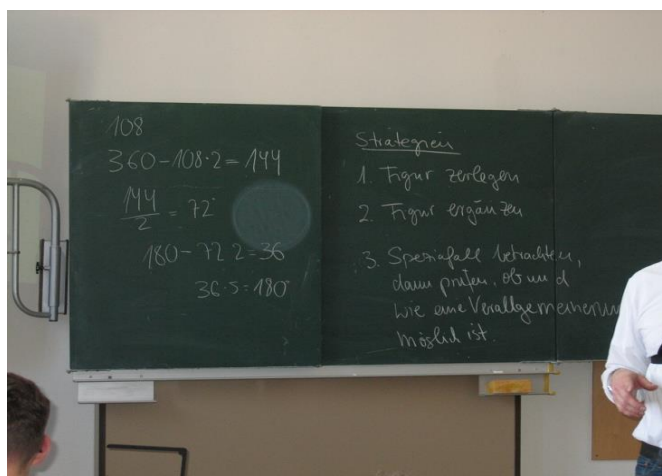 108
360-108·2=144
144/2 = 72°
180-72·2=36
36·5=180°
Strategien
1. Figur zerlegen
2. Figur ergänzen
3. Spezialfall betrachten,
dann prüfen, ob und
wie eine Verallgemeinerun
möglich ist.